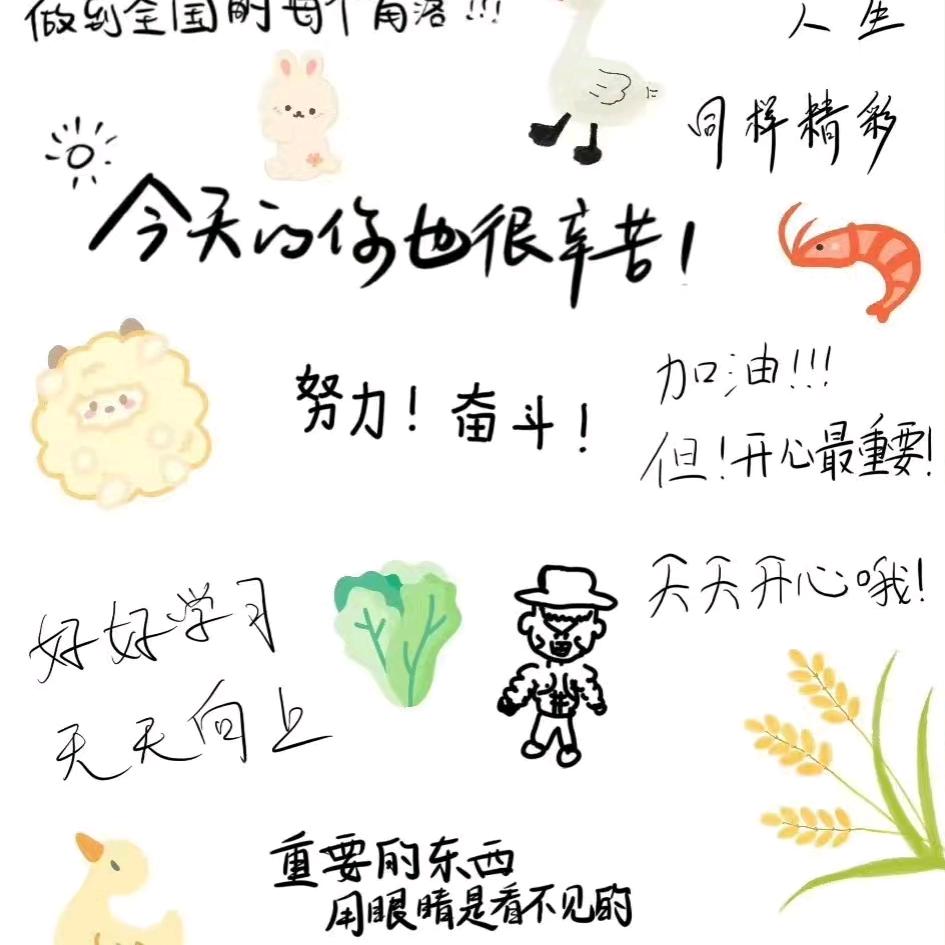 做到全国的每个角落!!!
人生
同样精彩
今天的你也很辛苦!
努力!奋斗!
加油!!!
但!开心最重要!
天天开心哦!
好好学习
天天向上
重要的东西
用眼睛是看不见的